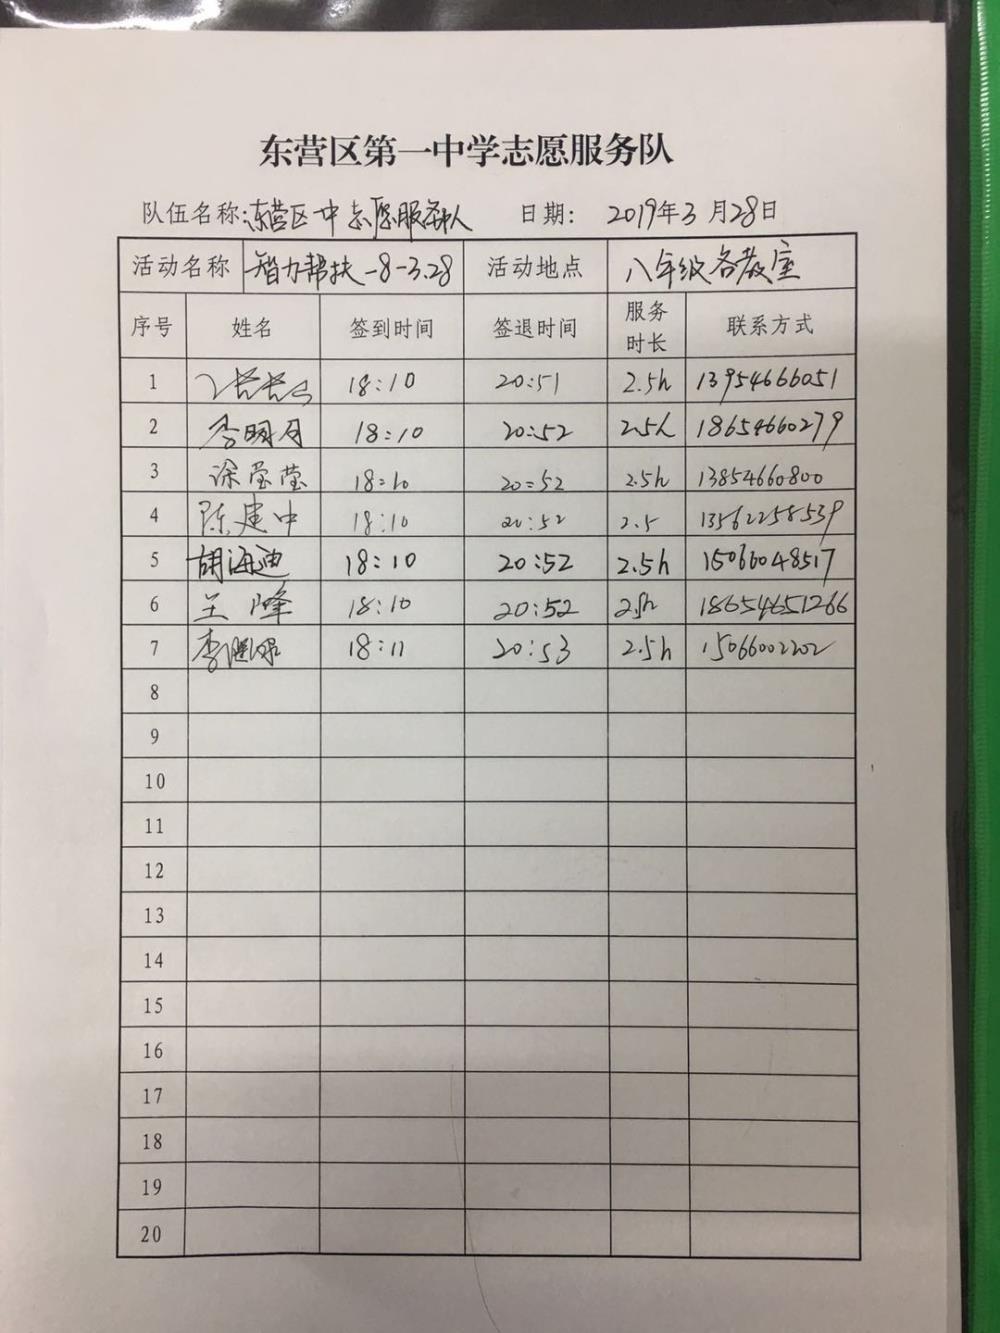 东营区第一中学志愿服务队
队伍名称:东营区一中志愿服务队 日期: 2019年3月28日
活动名称 智力帮扶-8-3.28 活动地点 八年级各教室
序号 姓名 签到时间 签退时间 服务时长 联系方式
1 18:10 20:51 2.5h 13954666051
2 李明月 18:10 20:52 2.5h 18654660279
3 徐莹莹 18:10 20:52 2.5h 13854660800
4 陈建中 18:10 20:52 2.5 13562258539
5 胡海迪 18:10 20:52 2.5h 15066048517
6 王峰 18:10 20:52 2.5h 18654651266
7 李 18:11 20:53 2.5h 15066002202
8
9
10
11
12
13
14
15
16
17
18
19
20